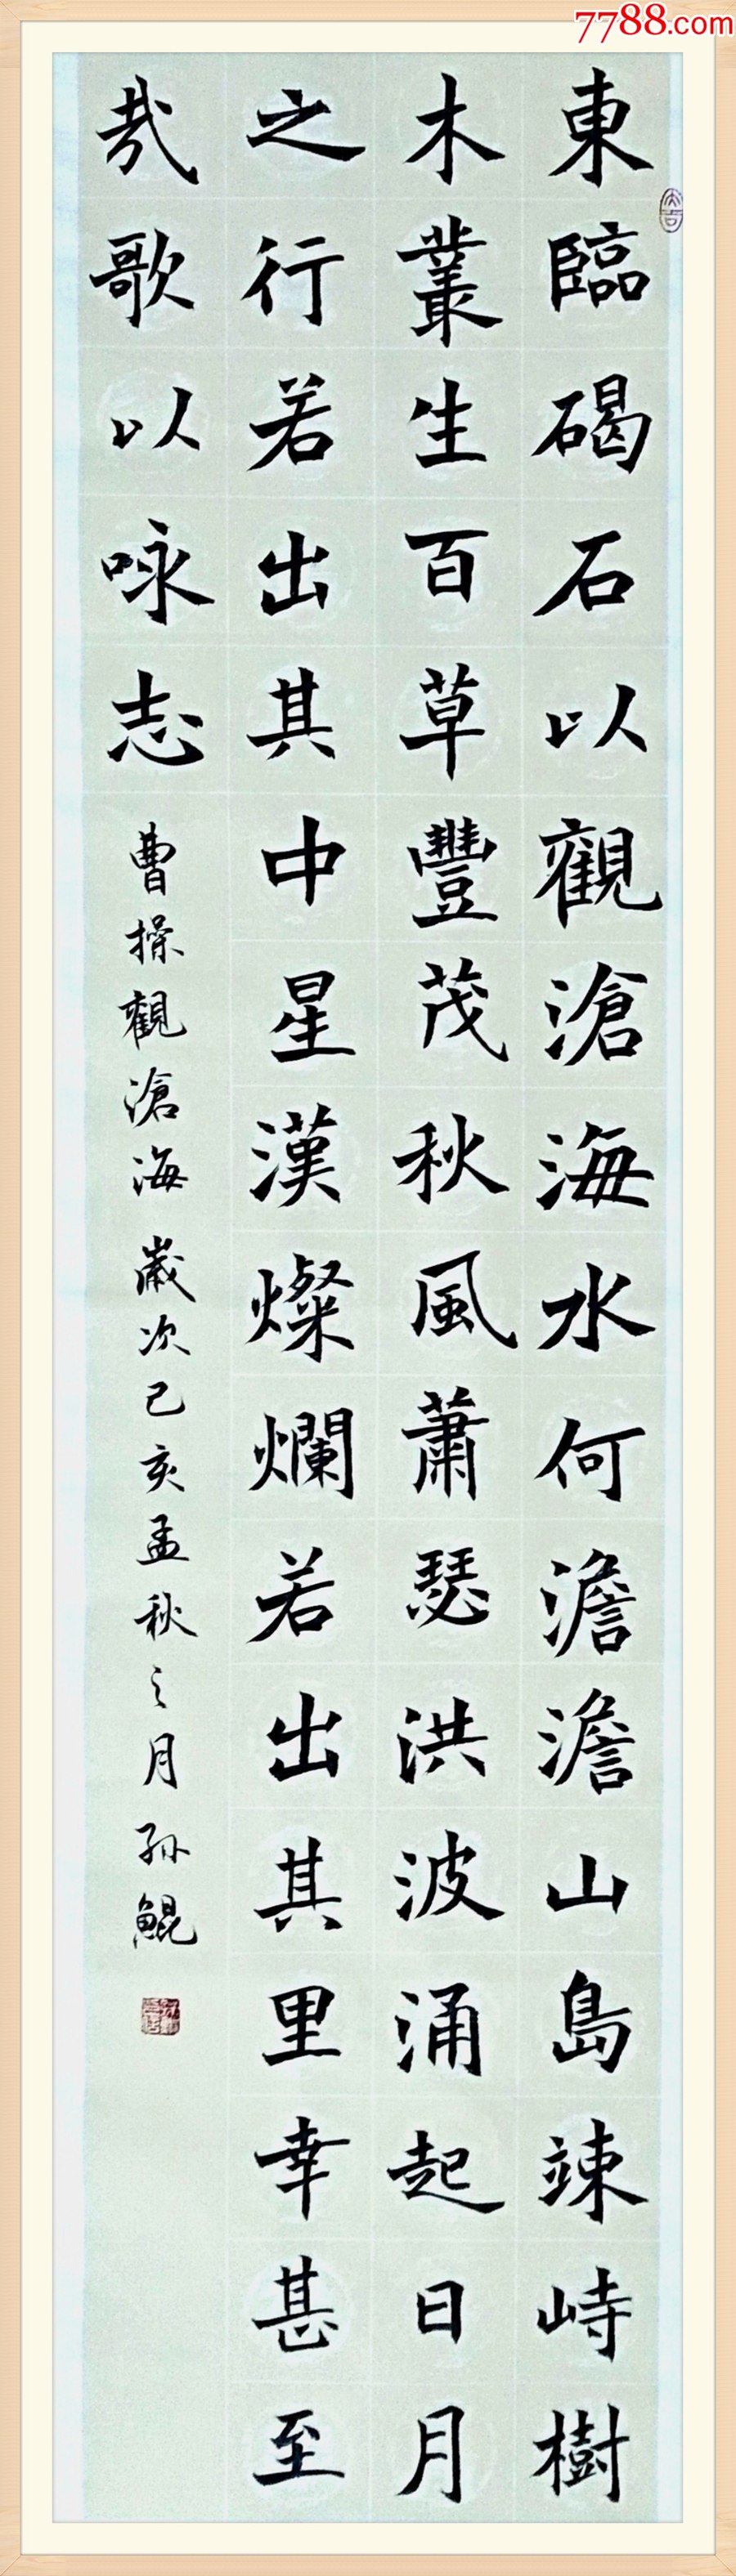 7788.com
東臨碣石以觀滄海水何澹澹山島竦峙樹
木叢生百草豐茂秋風蕭瑟洪波涌起日月
之行若出其中星漢燦爛若出其里幸甚至
哉歌以咏志
曹操觀滄海 歲次己亥孟秋之月 孙鯤